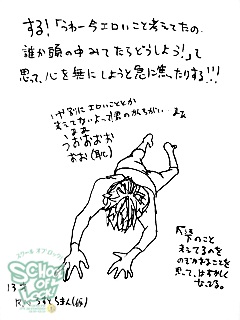 する!「うわー今エロいこと考えてたの
誰か頭の中みてたらどうしよう!」って
思って、心を無にしようと急に焦ったりする!!!
いや別にエロいこととか
考えてないよって君のかんちがい
まあ
うおおおお
おお(恥)
のこと
考えてるのを
のぞかれることを
思って、はずかしく
なってる。
スクール オブ ロック!
SCHOOL
OF
LOCK!
13才